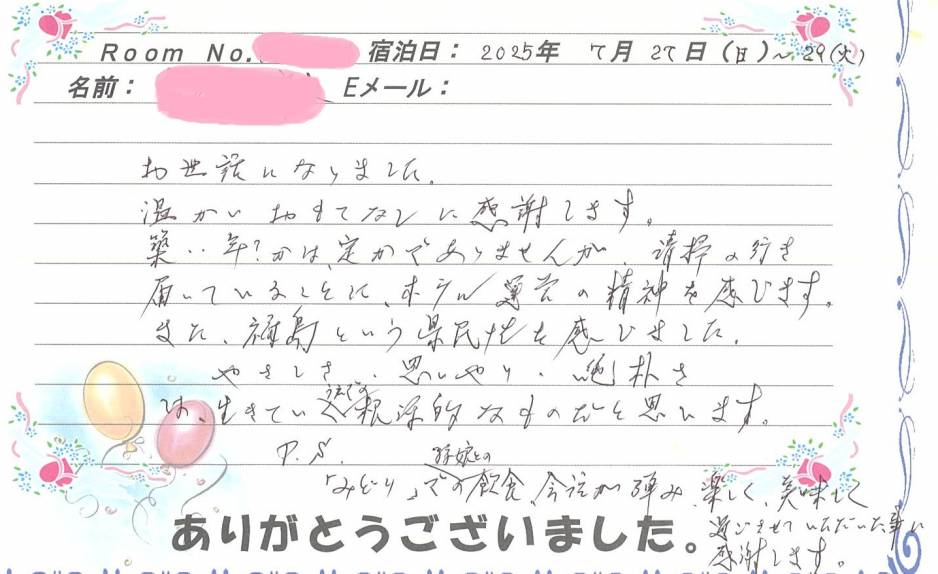 Room No. 宿泊日： 2025年 7月 27日（日）～29(火)
名前： Eメール：
お世話になりました。
温かいおもてなしに感謝します。
築‥年？かは、定かでありませんが、清掃の行き
届いていることに、ホテル運営の精神を感じます。
また、福島という県民性を感じました。
やさしさ・思いやり・純朴さ
は、生きていく上での根源的なものだと思います。
P.S.
孫娘との
「みどり」での飲食、会話が弾み、楽しく、美味しく
過ごさせていただいた事に
感謝します。
ありがとうございました。